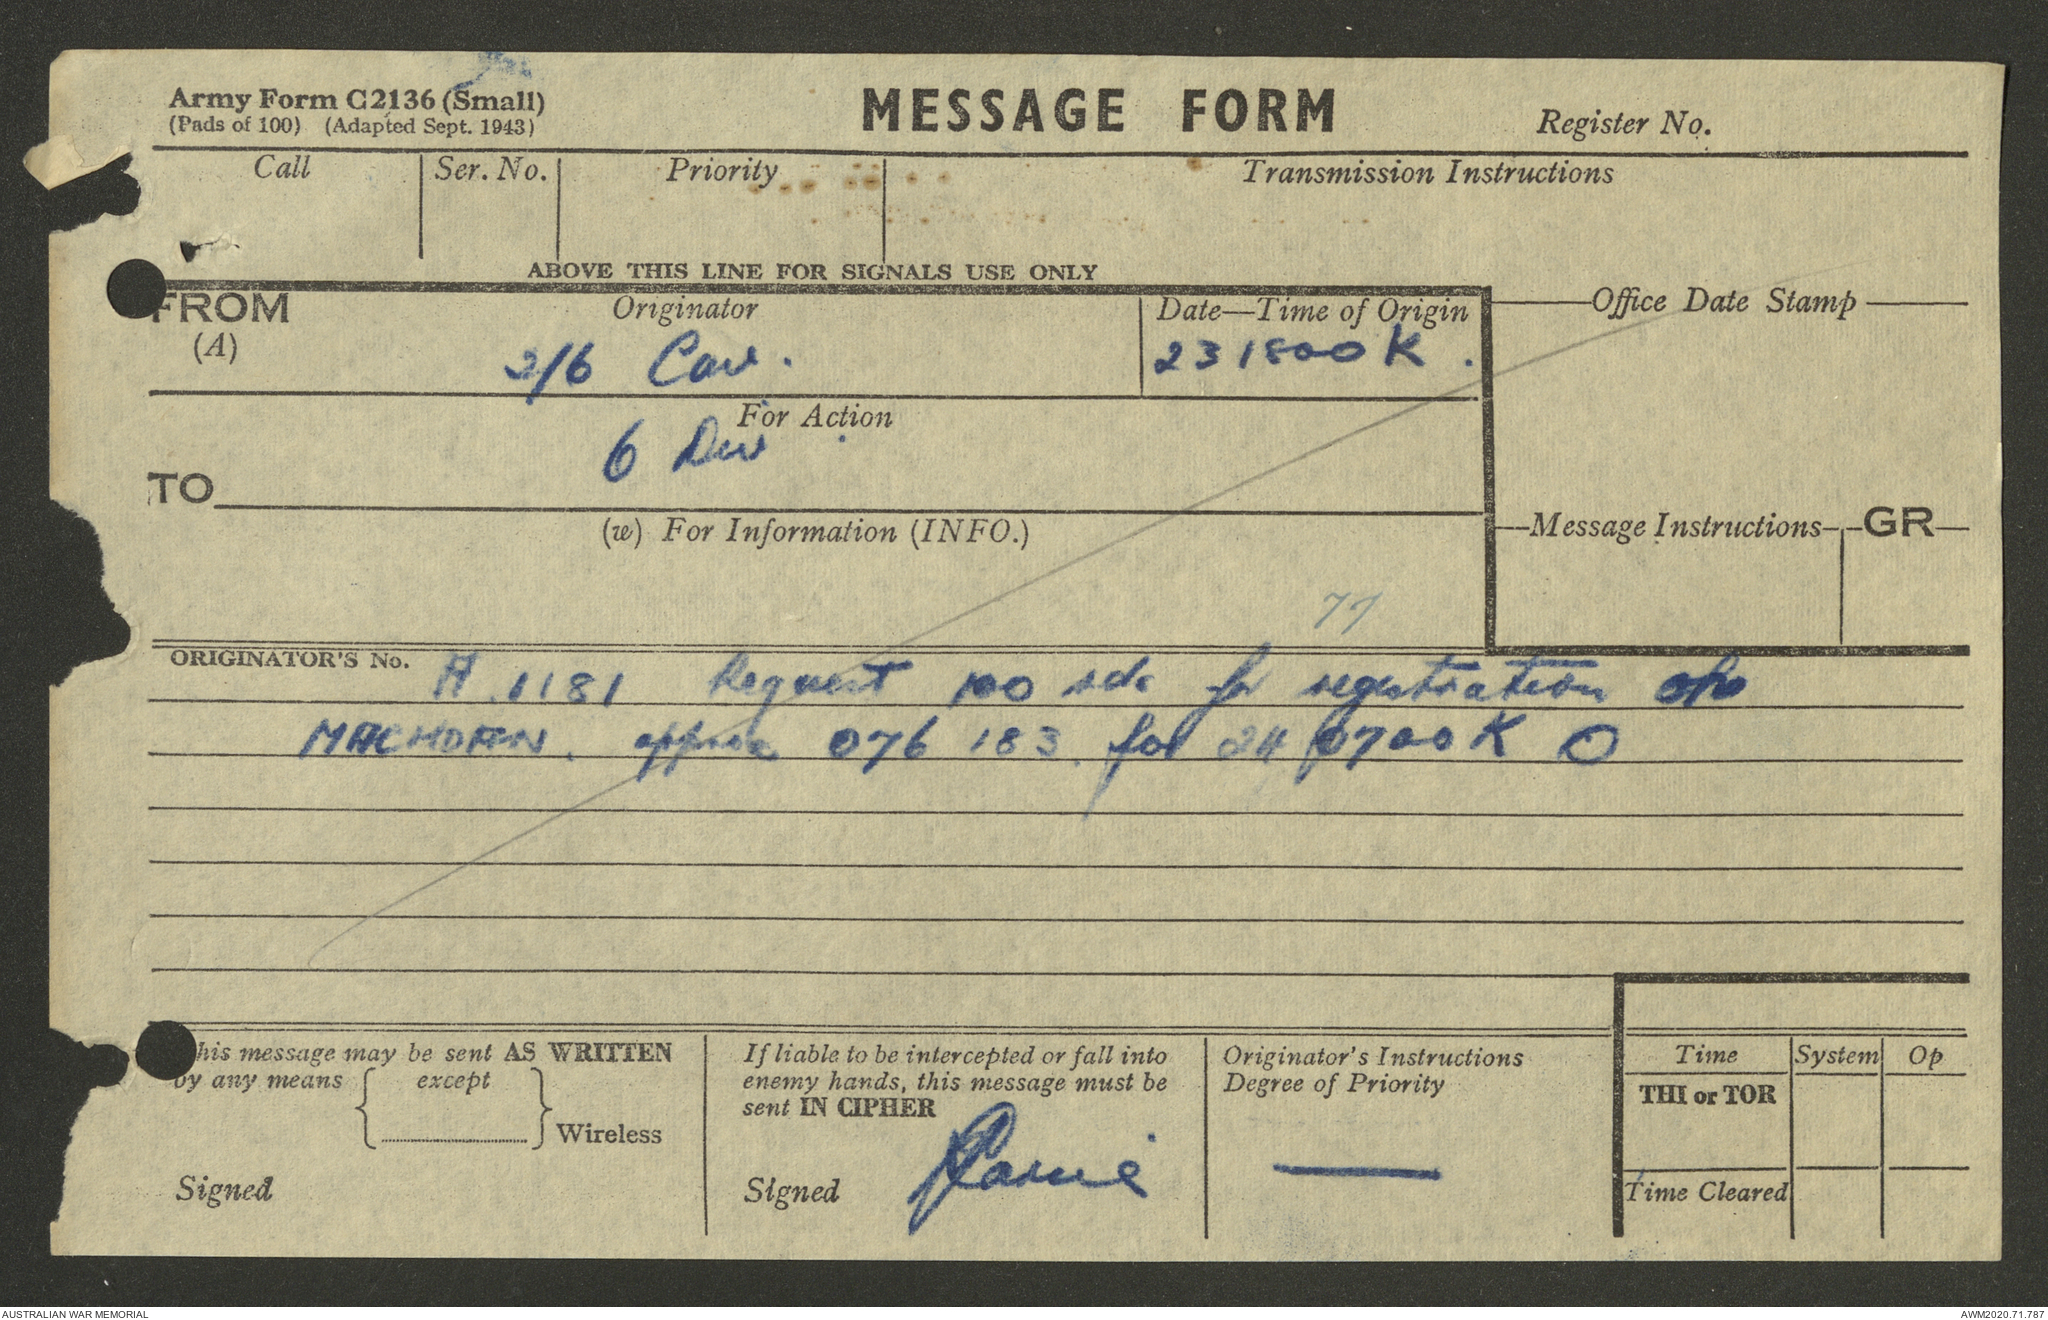 Army Form C2136 (Small)
(Pads of 100) (Adapted Sept. 1943)
MESSAGE FORM
Register No.
Call
Ser. No.
Priority
Transmission Instructions
ABOVE THIS LINE FOR SIGNALS USE ONLY
FROM
(A)
Originator
2/6 Cav.
Date—Time of Origin
231800K.
Office Date Stamp
For Action
6 Div
TO
(w) For Information (INFO.)
Message Instructions
GR
77
ORIGINATOR'S No.
A.1181 Request 100 rds for registration
approx 076 183. for 24 0700K O
This message may be sent AS WRITTEN
by any means except
Wireless
Signed
If liable to be intercepted or fall into
enemy hands, this message must be
sent IN CIPHER
Signed
Originator's Instructions
Degree of Priority
Time
System
Op
THI or TOR
Time Cleared
AUSTRALIAN WAR MEMORIAL
AWM2020.71.787